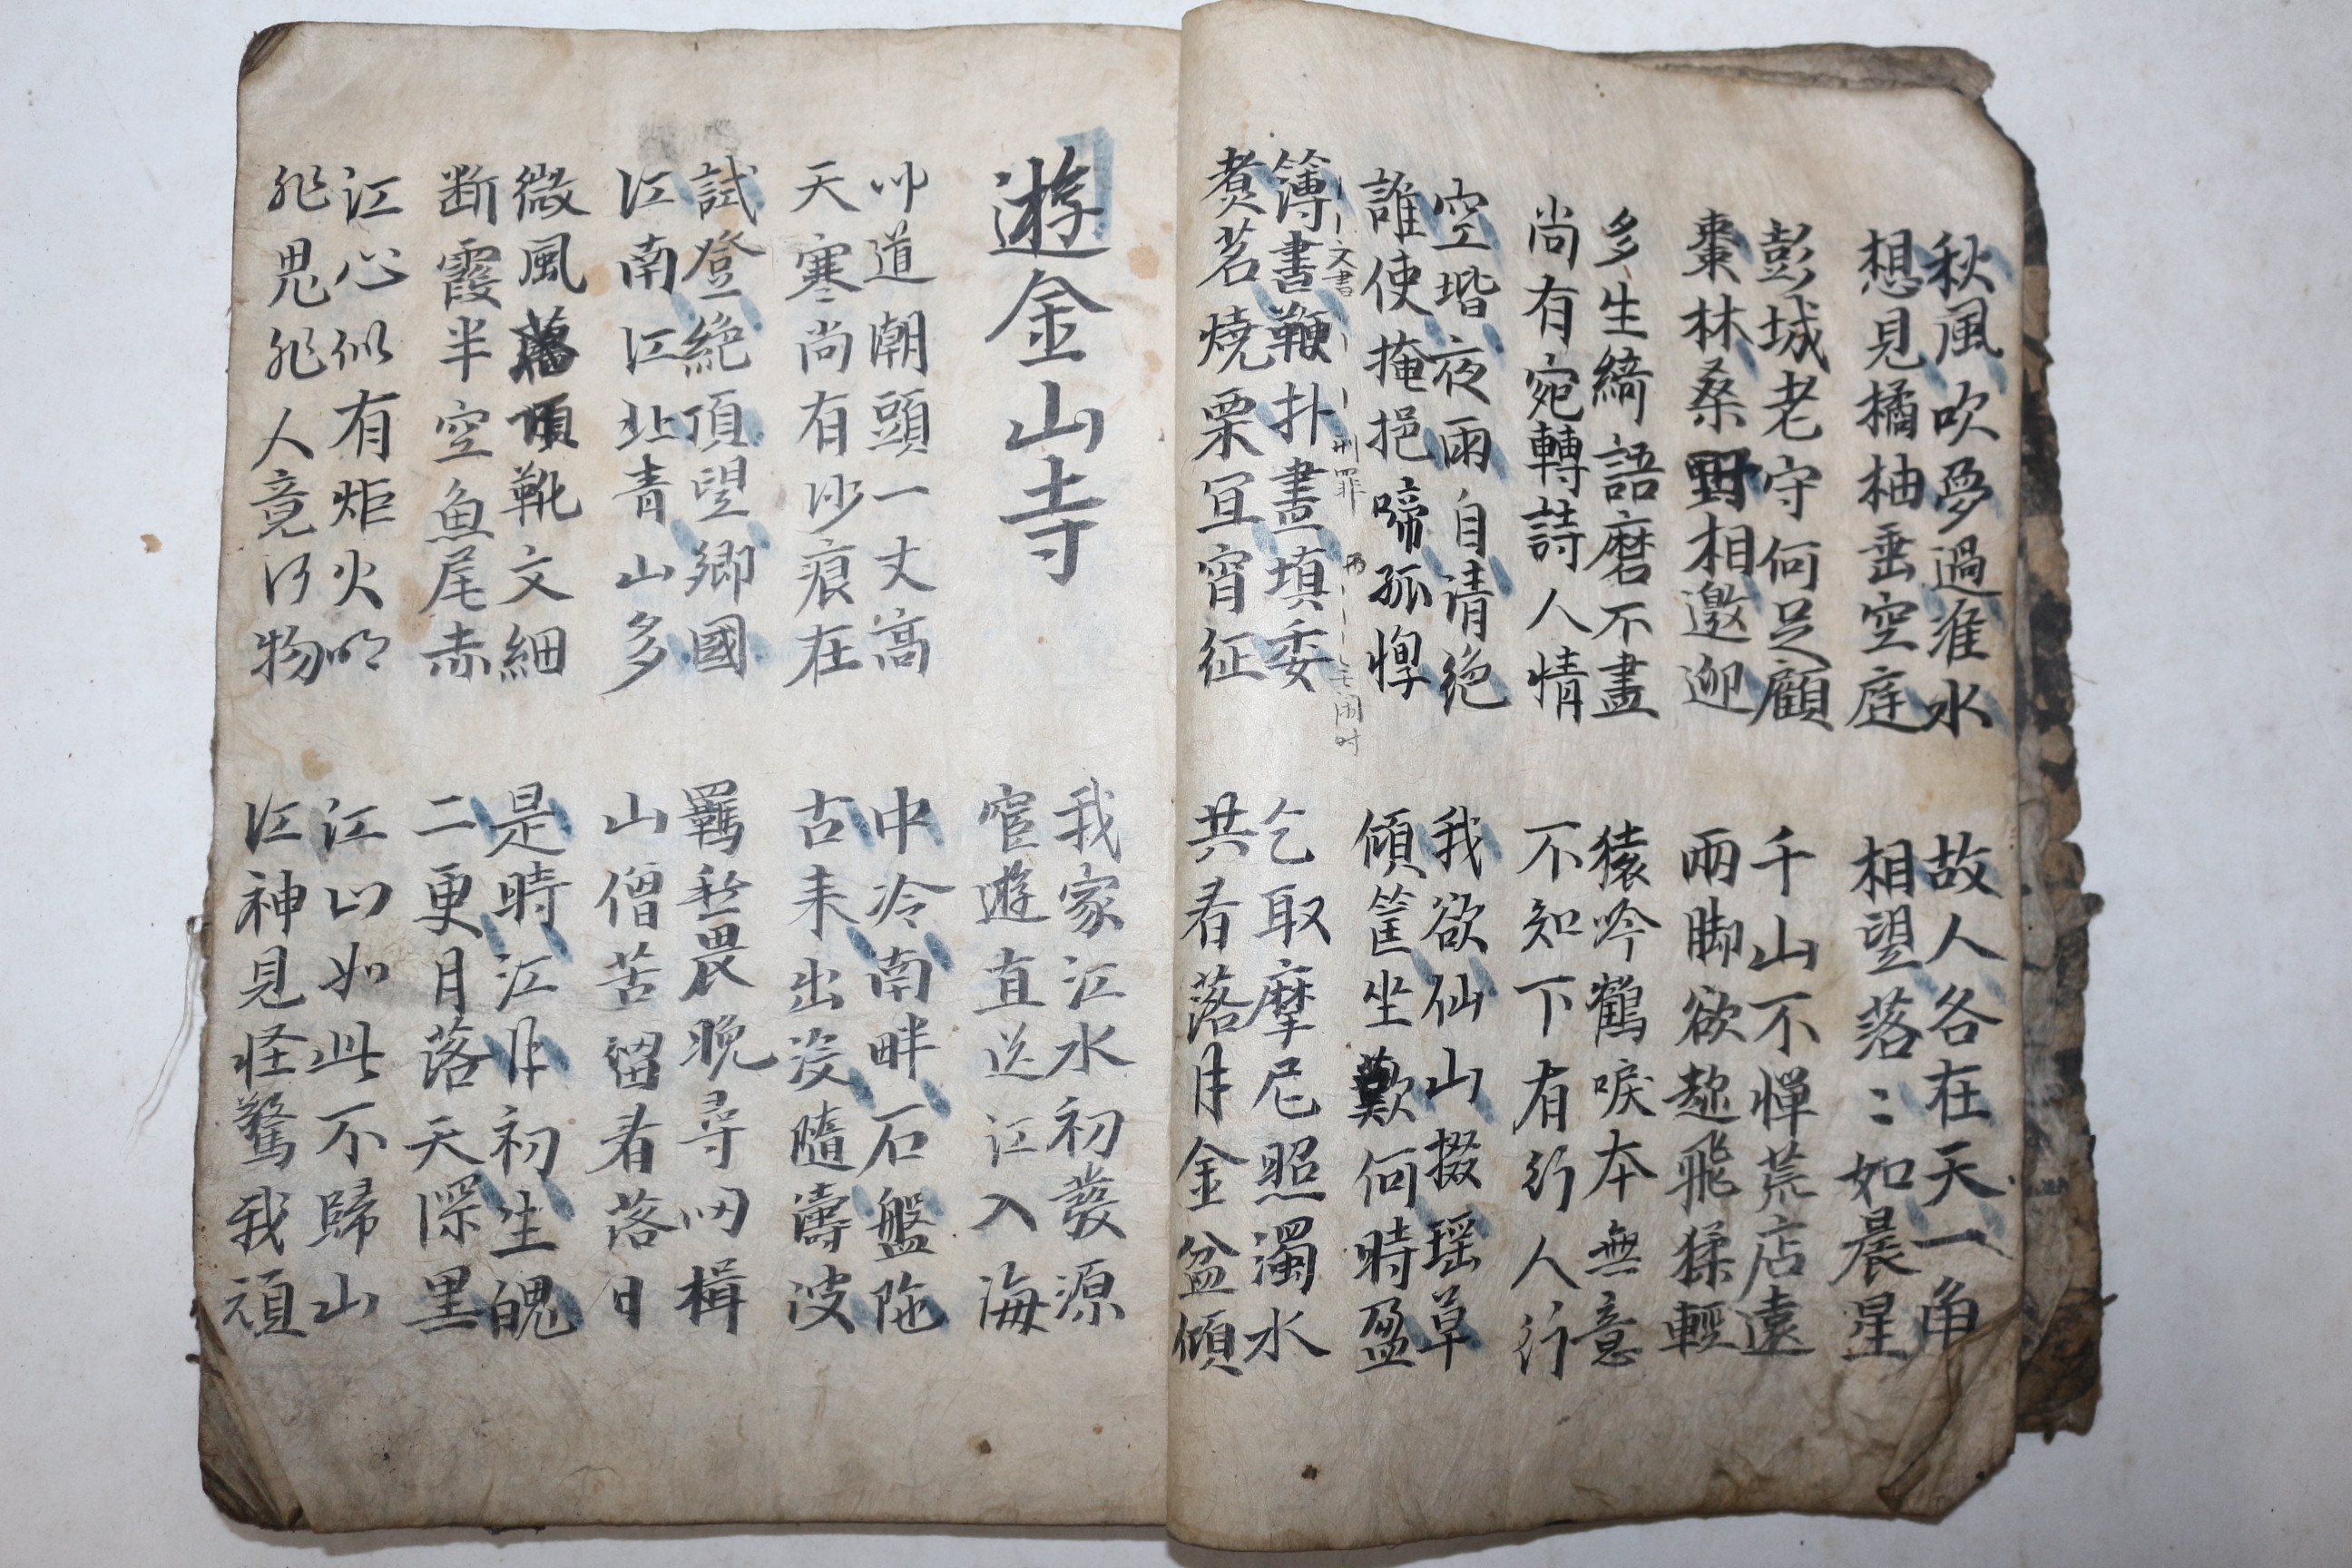 秋風吹夢過淮水
想見橘柚垂空庭
故人各在天一角
相望落〻如晨星
彭城老守何足顧
棗林桑野相邀迎
千山不憚荒店遠
兩脚欲趂飛猱輕
多生綺語磨不盡
尚有宛轉詩人情
猿吟鶴唳本無意
不知下有行人行
空堦夜雨自清絶
誰使掩挹啼孤惸
我欲仙山掇瑶草
傾筐坐歎何時盈
簿書鞭扑晝填委
文書
刑罪
煑茗燒栗宜宵征
乞取摩尼照濁水
共看落月金盆傾
遊金山寺
我家江水初發源
宦遊直送江入海
聞道潮頭一丈高
天寒尚有沙痕在
中冷南畔石盤陁
古来出沒隨濤波
試登絶頂望鄉國
江南江北青山多
羈愁畏晚尋回楫
山僧苦留看落日
微風萬頃靴文細
断霞半空魚尾赤
是時江月初生魄
二更月落天深黑
江心似有炬火明
江山如此不歸山
非鬼非人竟何物
江神見怪驚我頑